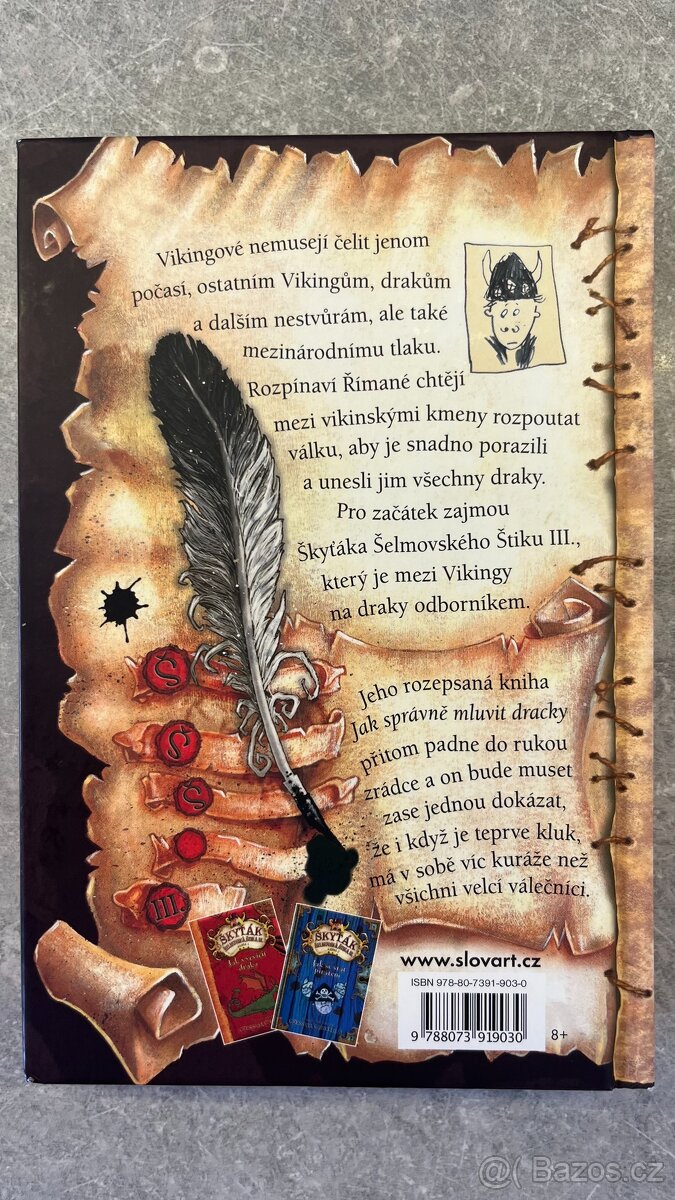 Vikingové nemusejí čelit jenom
počasí, ostatním Vikingům, drakům
a dalším nestvůrám, ale také
mezinárodnímu tlaku.
Rozpínaví Římané chtějí
mezi vikinskými kmeny rozpoutat
válku, aby je snadno porazili
a unesli jim všechny draky.
Pro začátek zajmou
Škyťáka Šelmovského Štiku III.,
který je mezi Vikingy
na draky odborníkem.
Jeho rozepsaná kniha
Jak správně mluvit dracky
přitom padne do rukou
zrádce a on bude muset
zase jednou dokázat,
že i když je teprve kluk,
má v sobě víc kuráže než
všichni velcí válečníci.
Š
Š
Š
III.
ŠKYŤÁK
Jak vycvičit
draka
ŠKYŤÁK
Jak se stát
pirátem
www.slovart.cz
ISBN 978-80-7391-903-0
9 788073 919030
8+
@( Bazos.cz